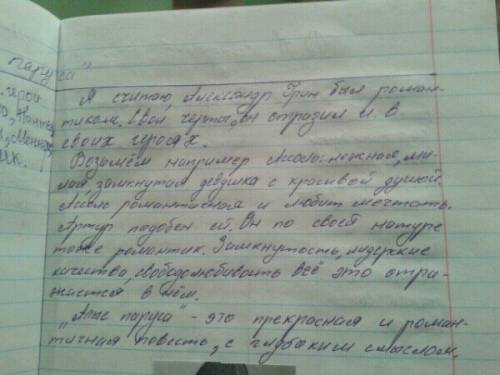 паруса"
герои
Я считаю, Александр Грин был роман-
тиком. Свои черты, он отразил и в
своих героях.
Возьмём например Ассоль: нежная, ми-
лая замкнутая девушка с красивой душой.
Ассоль романтичная и любит мечтать.
Артур подобен ей. Он по своей натуре
тоже романтик. Замкнутость, лидерские
качества, свободолюбивость всё это отра-
жается в нём.
"Алые паруса" - это прекрасная и роман-
тичная повесть, с глубоким смыслом.